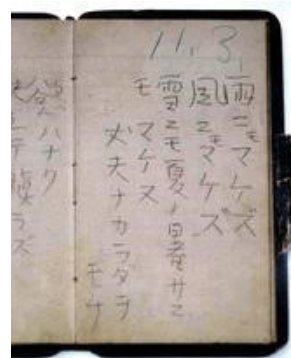 11.3.
雨ニモマケズ
風ニモマケズ
雪ニモ夏ノ暑サニ
モマケヌ
丈夫ナカラダヲ
モチ
慾ハナク
決シテ瞋ラズ